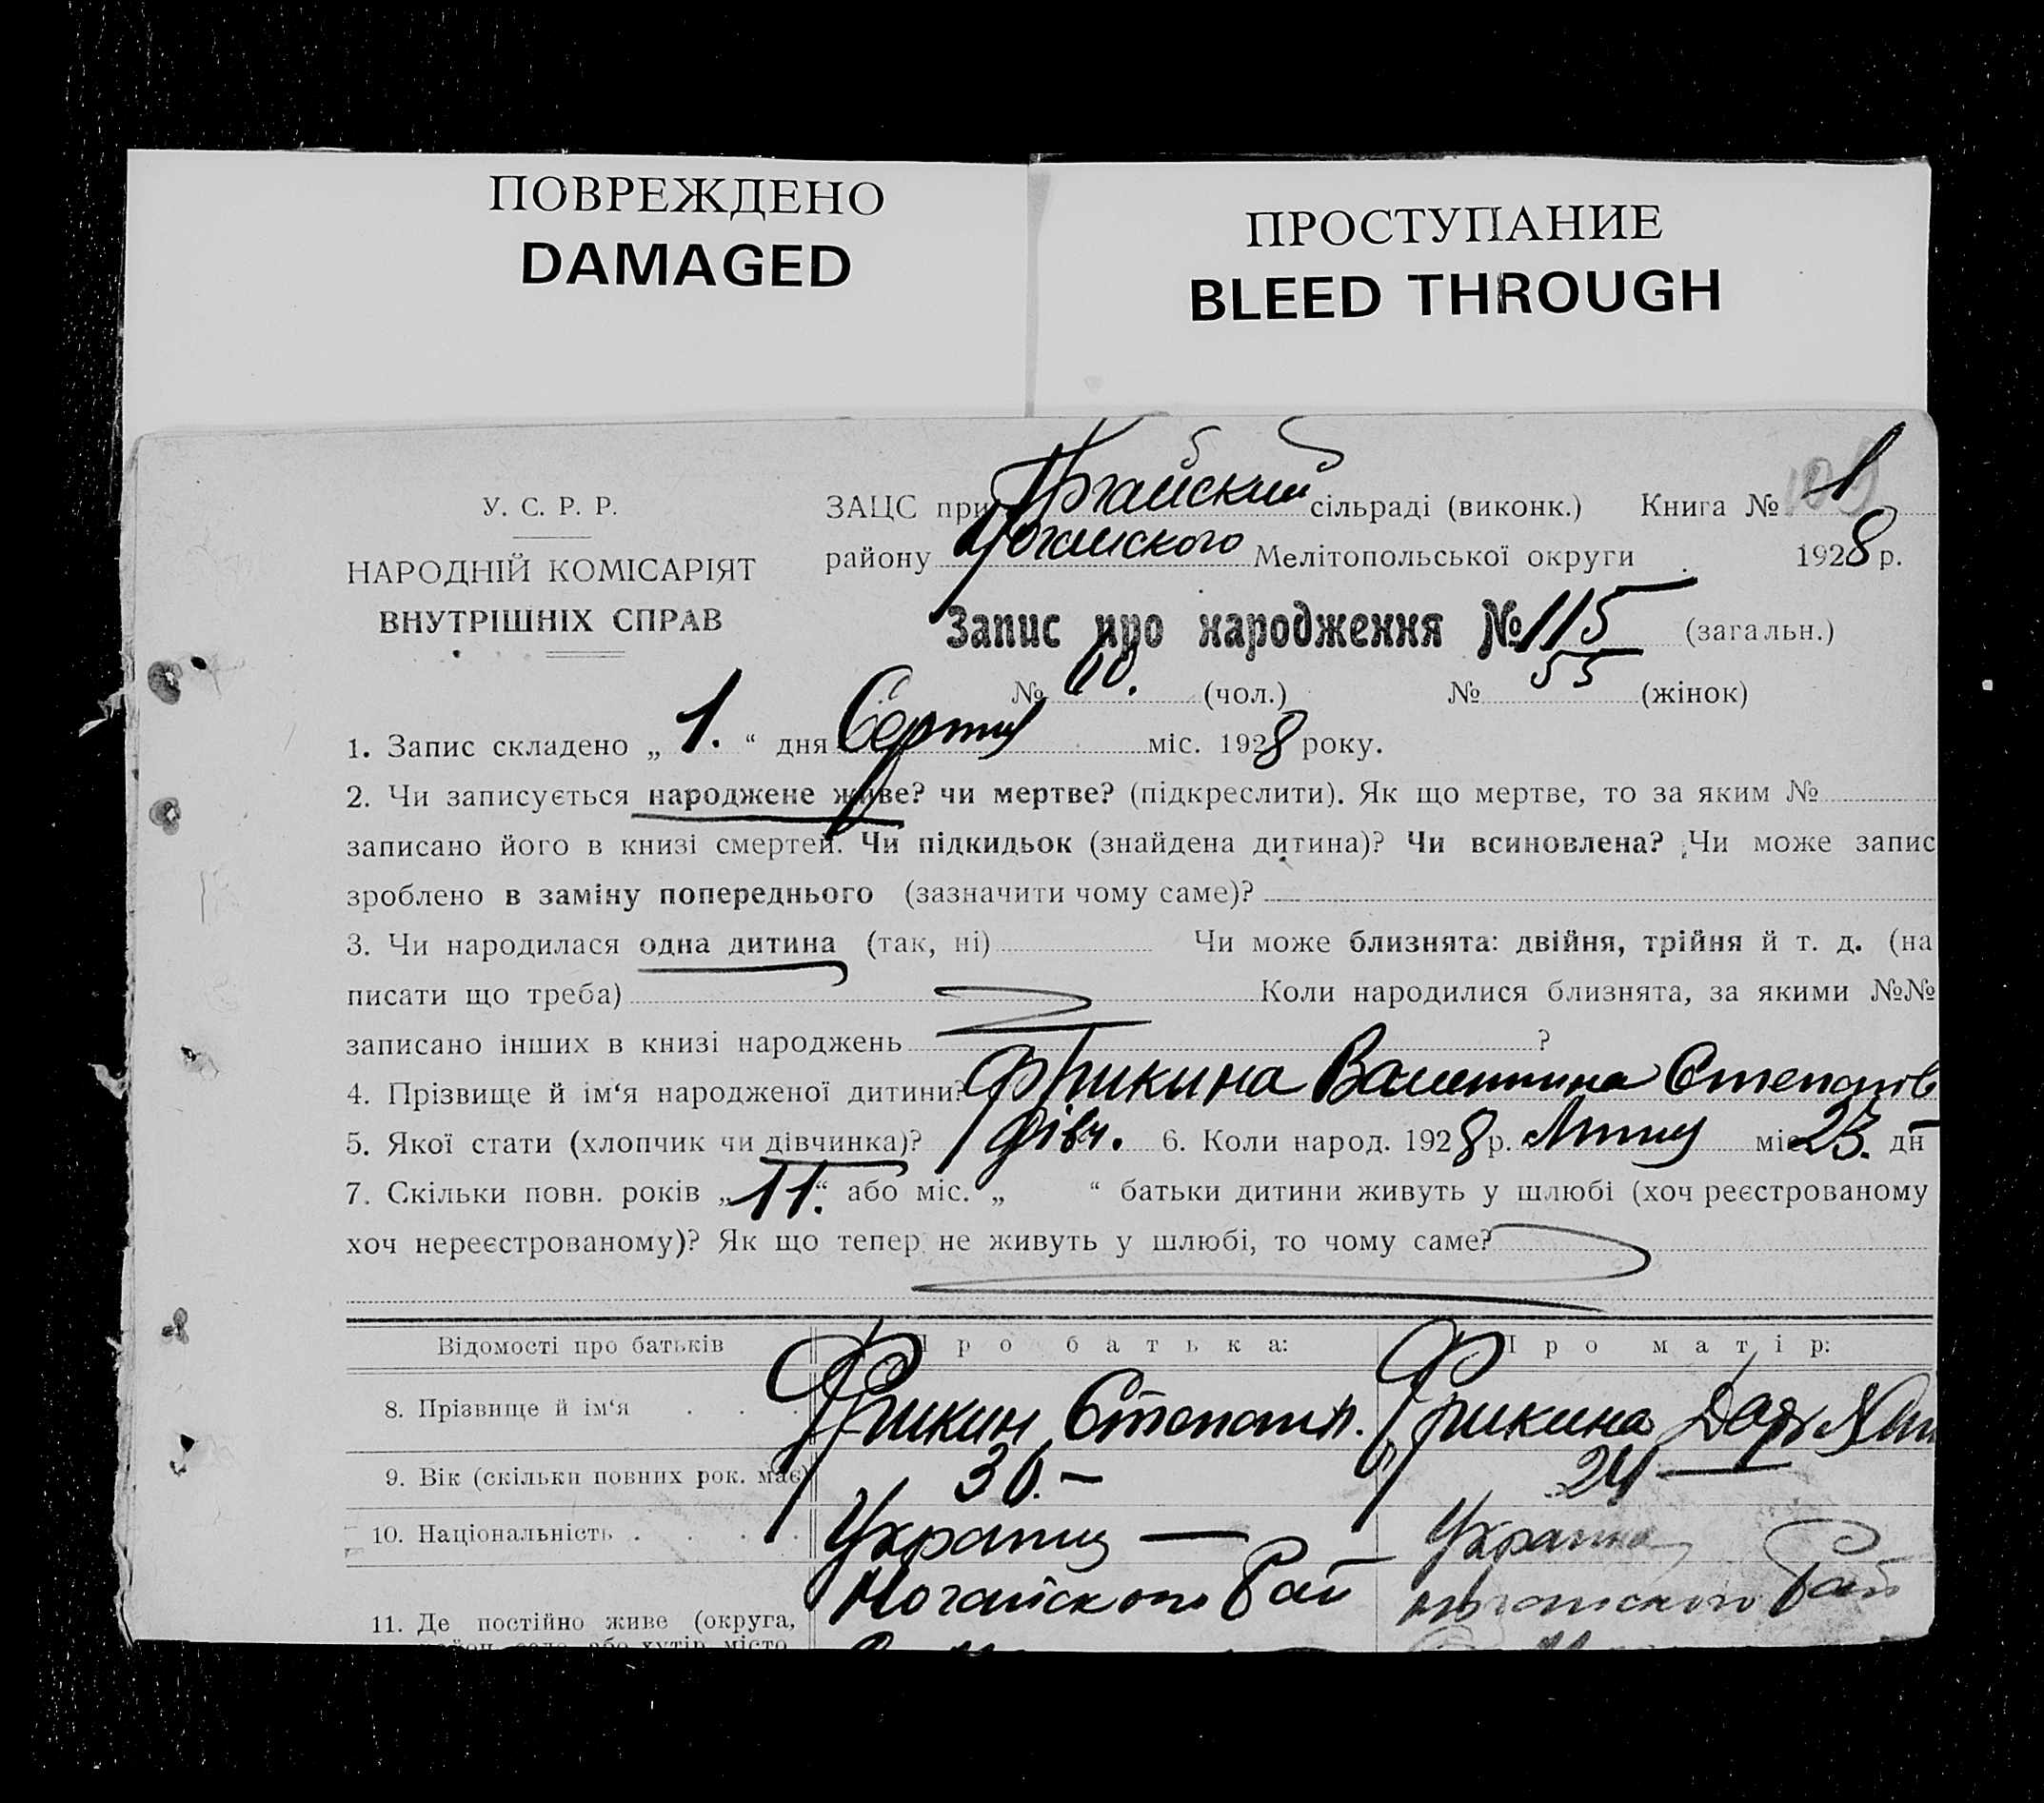 ПОВРЕЖДЕНО
DAMAGED
ПРОСТУПАНИЕ
BLEED THROUGH
У. С. Р. Р.
НАРОДНІЙ КОМІСАРІЯТ
ВНУТРІШНІХ СПРАВ
ЗАЦС при сільраді (виконк.) Книга № 1
району Ногайского Мелітопольської округи 1928 р.
Запис про народження № 115 (загальн.)
№ 60. (чол.) № 55 (жінок)
1. Запис складено „ 1. “ дня Серпня міс. 1928 року.
2. Чи записується народжене живе? чи мертве? (підкреслити). Як що мертве, то за яким №
записано його в книзі смертей. Чи підкидьок (знайдена дитина)? Чи всиновлена? Чи може запис
зроблено в заміну попереднього (зазначити чому саме)?
3. Чи народилася одна дитина (так, ні) Чи може близнята: двійня, трійня й т. д. (на
писати що треба) Коли народилися близнята, за якими №№
записано інших в книзі народжень ?
4. Прізвище й ім‘я народженої дитини? Фрикина Валентина Степанів
5. Якої стати (хлопчик чи дівчинка)? дівч. 6. Коли народ. 1928 р. Липня міс 23. дн
7. Скільки повн. років „ 11. “ або міс. „ “ батьки дитини живуть у шлюбі (хоч реєстрованому
хоч нереєстрованому)? Як що тепер не живуть у шлюбі, то чому саме?
Відомості про батьків Про батька: Про матір:
8. Прізвище й ім‘я . . . Фрикин Степан Фрикина Дар
9. Вік (скільки повних рок. має) 30. – 24 –
10. Національність . . . . Украинц – Украинц
Ногайского Рай Ногайского Рай
11. Де постійно живе (округа,
район, село або хутір, місто